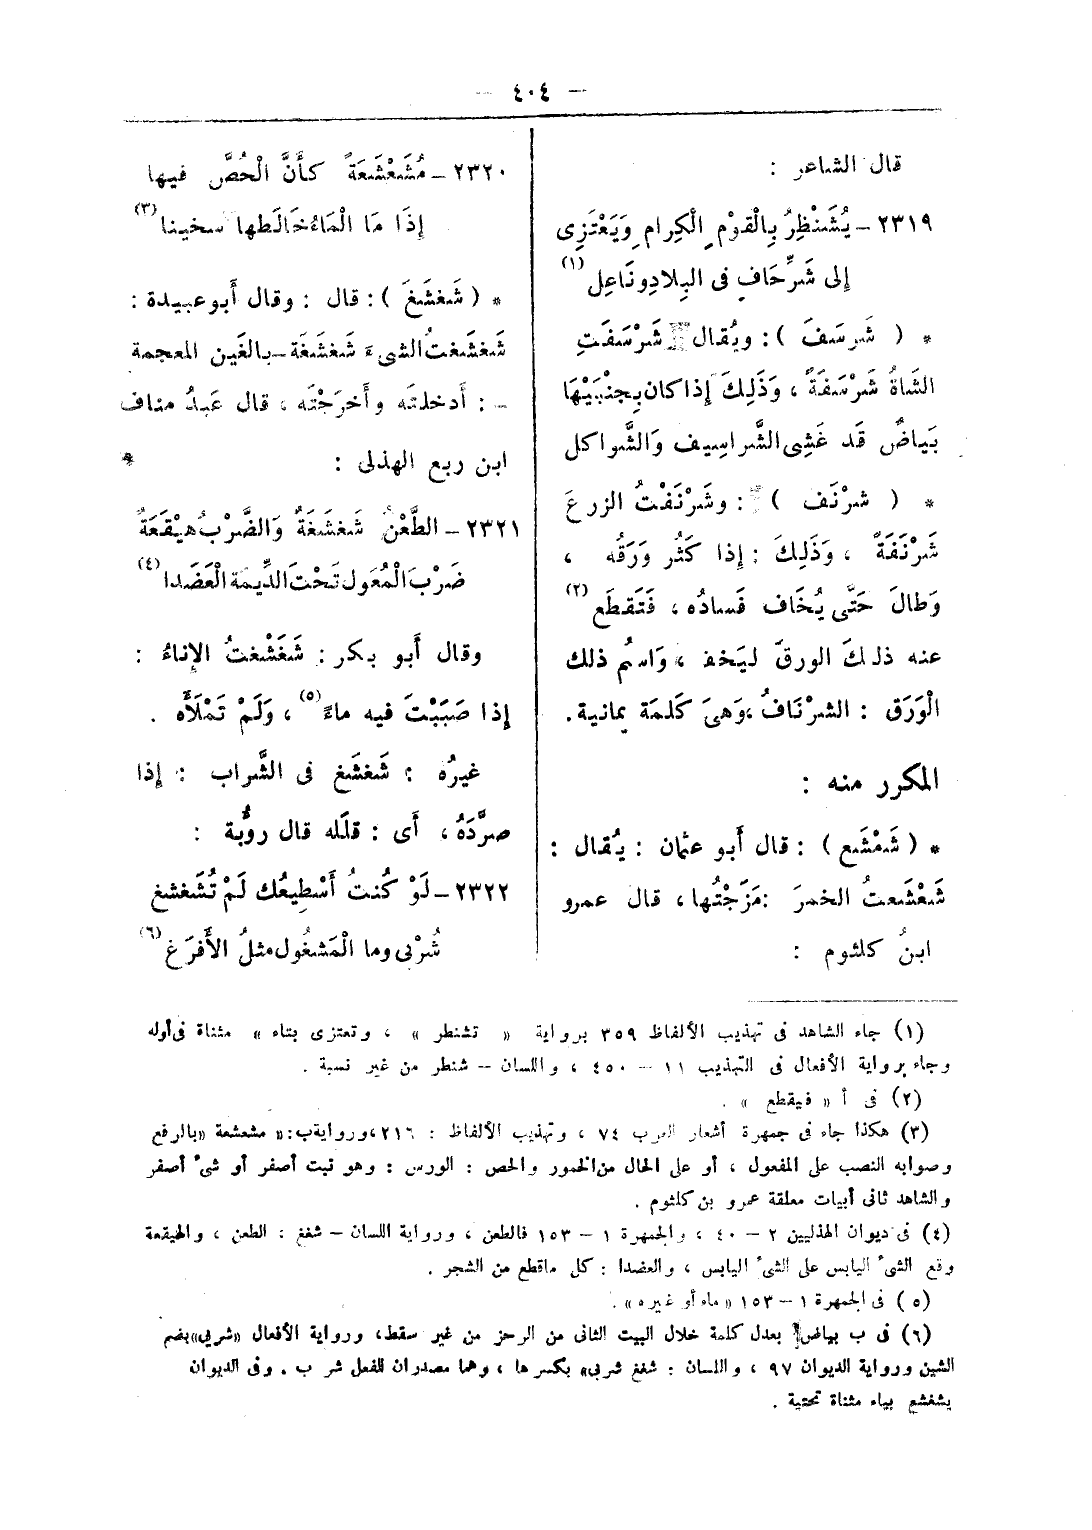 — ٤٠٤ —
قال الشاعر :
٢٣١٩ – يُشَنْظِرُ بِالْقَوْمِ الْكِرامِ وَيَعْتَزِى
إلى شَرِّ حَافٍ فى البِلادِ ونَاعِلِ (١)
* ( شَرسَفَ ) : ويُقال شَرْسَفَتِ
الشاةُ شَرْسَفَةً ، وَذَلِكَ إذا كان بِجنْبَيْهَا
بَيَاضٌ قَد غَشِى الشَّراسِيف وَالشَّواكل
* ( شرْنَف ) : وشَرْنَفْتُ الزرعَ
شَرْنَفَةً ، وَذَلِكَ : إذا كَثُر وَرَقُه ،
وَطالَ حَتَّى يُخَاف فَسادُه ، فَتَقطَع (٢)
عنه ذلكَ الورقَ ليَخف ، وَاسْم ذلك
الْوَرَق : الشرْنَافُ ، وَهىَ كَلمَة يمانية .
المكرر منه :
* ( شَمْشَع ) : قال أَبو عثمان : يُقال :
شَعْشَعتُ الخمرَ : مَزَجْتُها ، قال عمرو
ابنُ كلثوم :
٢٣٢٠ – مُشَعْشَعَةً كأَنَّ الْحُصَّ فيها
إذَا مَا الْمَاءُ خَالَطها سخينا (٣)
* ( شَغشَغَ ) : قال : وقال أَبو عبيدة :
شَغشَغتُ الشىءَ شَغشَغَة – بالغَين المعجمة
– : أَدخلتَه وأَخرَجْتَه ، قال عَبدُ مناف
ابن ربع الهذلى : *
٢٣٢١ – الطَّعْنُ شَغشَغَةٌ وَالضَّرْبُ هيْقَعَةٌ
ضَرْبَ الْمُعَول تَحْتَ الدِّيمَة الْعَضَدا (٤)
وقال أَبو بكر : شَغَشْغتُ الإناءُ :
إذا صَبَبْتَ فيه ماءً (٥) ، وَلَمْ تَمْلَأْه .
غيرُه : شَغشَغ فى الشَّراب : إذا
صرَّدَهُ ، أَى : قلَّله قال رؤبة :
٢٣٢٢ – لَوْ كُنتُ أَسْطِيعُك لَمْ تُشَغشغ
شُرْبى وما الْمَشغُول مثلُ الأَفرَغ (٦)
(١) جاء الشاهد فى تهذيب الألفاظ ٣٥٩ برواية « تشنطر » ، وتعتزى بتاء » مثناة فى أوله
وجاء برواية الأفعال فى التهذيب ١١ – ٤٥٠ ، واللسان – شنطر من غير نسبة .
(٢) فى أ « فيقطع » .
(٣) هكذا جاء فى جمهرة أشعار العرب ٧٤ ، وتهذيب الألفاظ : ٢١٦ ، ورواية ب : « مشعشعة » بالرفع
وصوابه النصب على المفعول ، أو على الحال من الخمور والحص : الورس : وهو نبت أصفر أو شئ أصفر
والشاهد ثانى أبيات معلقة عمرو بن كلثوم .
(٤) فى ديوان الهذليين ٢ – ٤٠ ، والجمهرة ١ – ١٥٣ فالطعن ، ورواية اللسان – شغغ : الطعن ، والهيقعة
وقع الشئ اليابس على الشئ اليابس ، والعضدا : كل ماقطع من الشجر .
(٥) فى الجمهرة ١ – ١٥٣ « ماء أو غيره » .
(٦) فى ب بياض يعدل كلمة خلال البيت الثانى من الرحز من غير سقط ، ورواية الأفعال «شربى» بضم
الشين ورواية الديوان ٩٧ ، واللسان : شغغ شربى» بكسرها ، وهما مصدران للفعل شرب . وفى الديوان
يشغشع بياء مثناة تحتية .